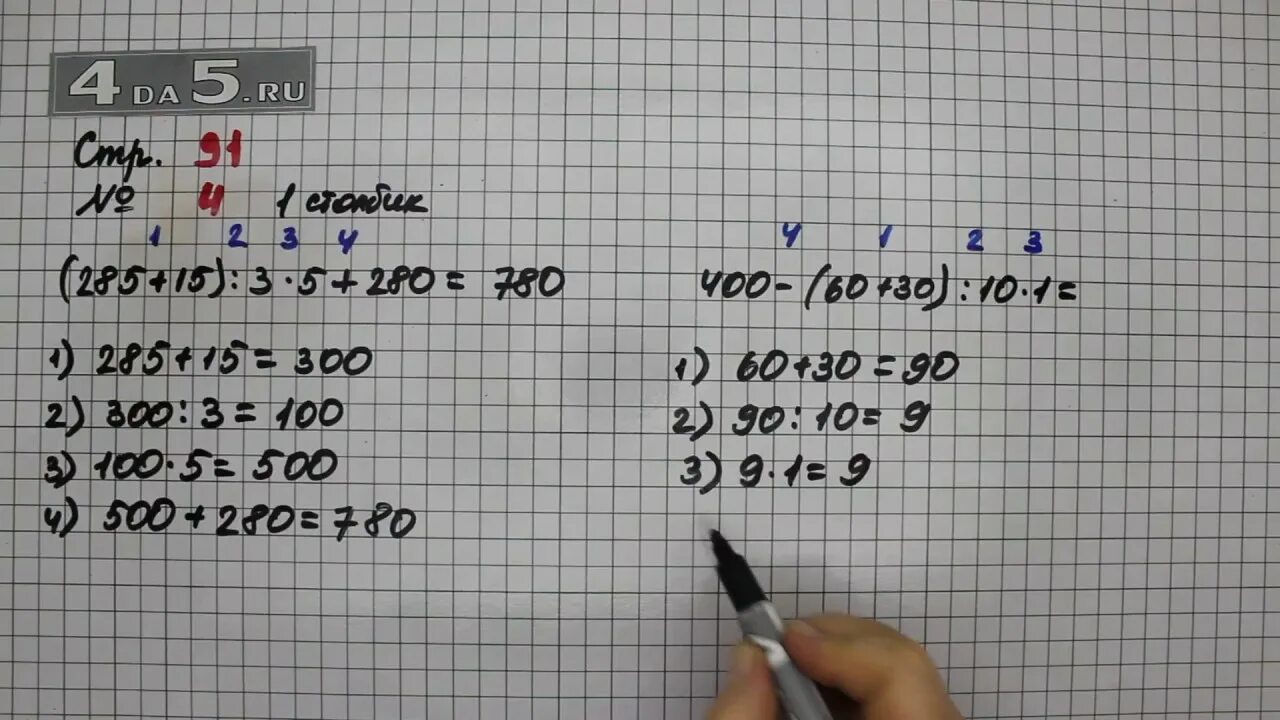 4 DA 5.RU
Стр. 91
№ 4 1 столбик
1 2 3 4
(285+15):3·5+280= 780
1) 285+15=300
2) 300:3=100
3) 100·5=500
4) 500+280=780
4 1 2 3
400-(60+30):10·1=
1) 60+30=90
2) 90:10=9
3) 9·1=9